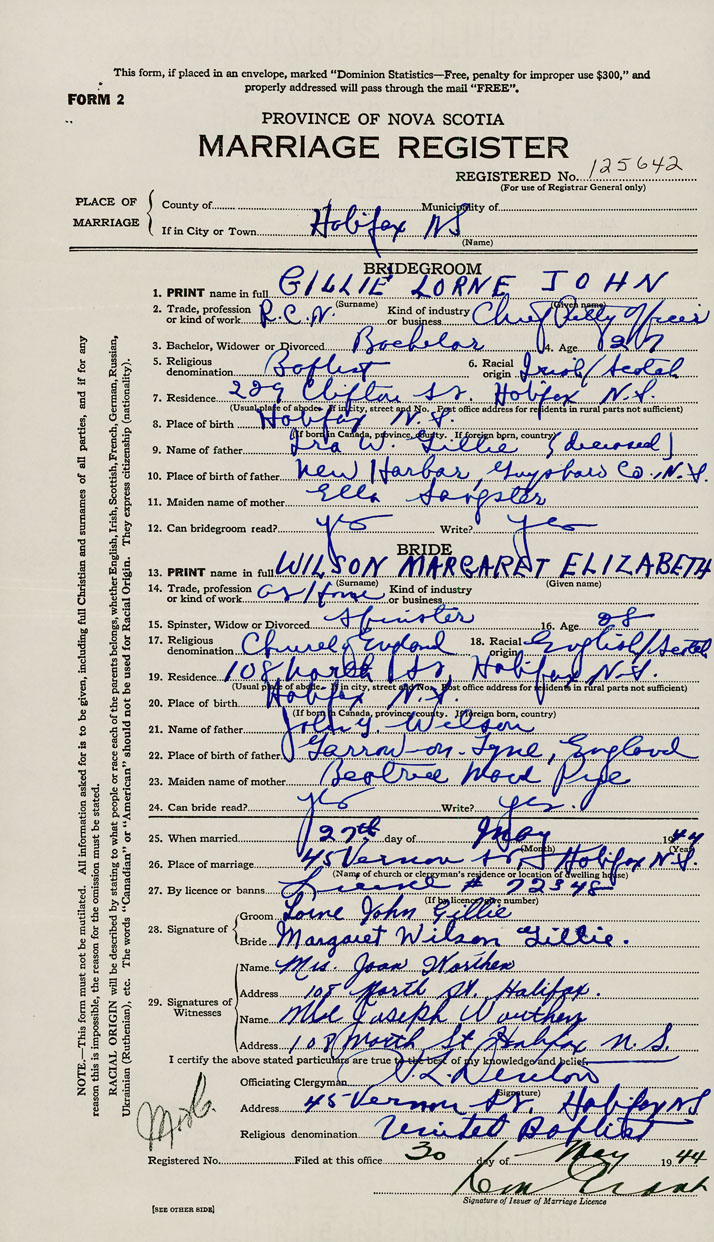 This form, if placed in an envelope, marked "Dominion Statistics—Free, penalty for improper use $300," and
properly addressed will pass through the mail "FREE".
FORM 2
PROVINCE OF NOVA SCOTIA
MARRIAGE REGISTER
REGISTERED No. 125642
(For use of Registrar General only)
PLACE OF MARRIAGE
County of Municipality of
If in City or Town Halifax NS
(Name)
BRIDEGROOM
1. PRINT name in full GILLIE LORNE JOHN
(Surname) (Given name)
2. Trade, profession or kind of work R.C.N. Kind of industry or business Chief Petty Officer
3. Bachelor, Widower or Divorced Bachelor 4. Age 27
5. Religious denomination Baptist 6. Racial origin Irish/Scotch
7. Residence 229 Clifton St. Halifax N.S.
(Usual place of abode. If in city, street and No. Post office address for residents in rural parts not sufficient)
8. Place of birth Halifax N.S.
(If born in Canada, province, county. If foreign born, country)
9. Name of father Ira W. Gillie (deceased)
10. Place of birth of father New Harbor, Guysboro Co., N.S.
11. Maiden name of mother Ella Sangster
12. Can bridegroom read? yes Write? yes
BRIDE
13. PRINT name in full WILSON MARGARET ELIZABETH
(Surname) (Given name)
14. Trade, profession or kind of work at Home Kind of industry or business
15. Spinster, Widow or Divorced Spinster 16. Age 28
17. Religious denomination Church of England 18. Racial origin English/Scotch
19. Residence 108 North St Halifax N.S.
(Usual place of abode. If in city, street and No. Post office address for residents in rural parts not sufficient)
20. Place of birth Halifax N.S.
(If born in Canada, province, county. If foreign born, country)
21. Name of father John Wilson
22. Place of birth of father Jarrow-on-Tyne, England
23. Maiden name of mother Beatrice Pipe
24. Can bride read? yes Write? yes.
25. When married 27th day of May 1944
(Month) (Year)
26. Place of marriage 45 Vernon St., Halifax N.S.
(Name of church or clergyman's residence or location of dwelling house)
27. By licence or banns License # 72348
(If by licence, give number)
28. Signature of
Groom Lorne John Gillie
Bride Margaret Wilson Gillie.
29. Signatures of Witnesses
Name Mrs Joan Worthen
Address 108 North St. Halifax.
Name Joseph Worthen
Address 108 North St Halifax N.S.
I certify the above stated particulars are true to the best of my knowledge and belief.
Officiating Clergyman
(Signature)
Address 45 Vernon St. Halifax NS
Religious denomination United Baptist
Registered No. Filed at this office 30 day of May 1944
Signature of Issuer of Marriage Licence
[SEE OTHER SIDE]
NOTE.—This form must not be mutilated. All information asked for is to be given, including full Christian and surnames of all parties, and if for any
reason this is impossible, the reason for the omission must be stated.
RACIAL ORIGIN will be described by stating to what people or race each of the parents belongs, whether English, Irish, Scottish, French, German, Russian,
Ukrainian (Ruthenian), etc. The words "Canadian" or "American" should not be used for Racial Origin. They express citizenship (nationality).